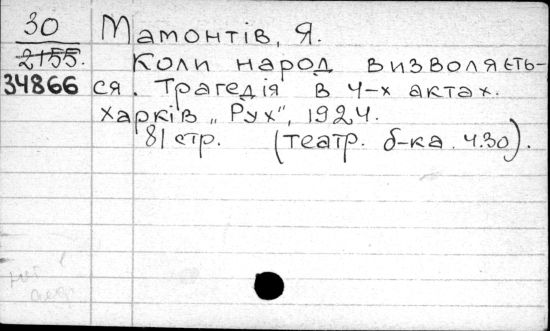 30 Мамонтів, Я.
2155. Коли народ визволяєть-
34866 ся. Трагедія в 4-х актах.
Харків „Рух", 1924.
81 стр. (театр. б-ка. ч.30).